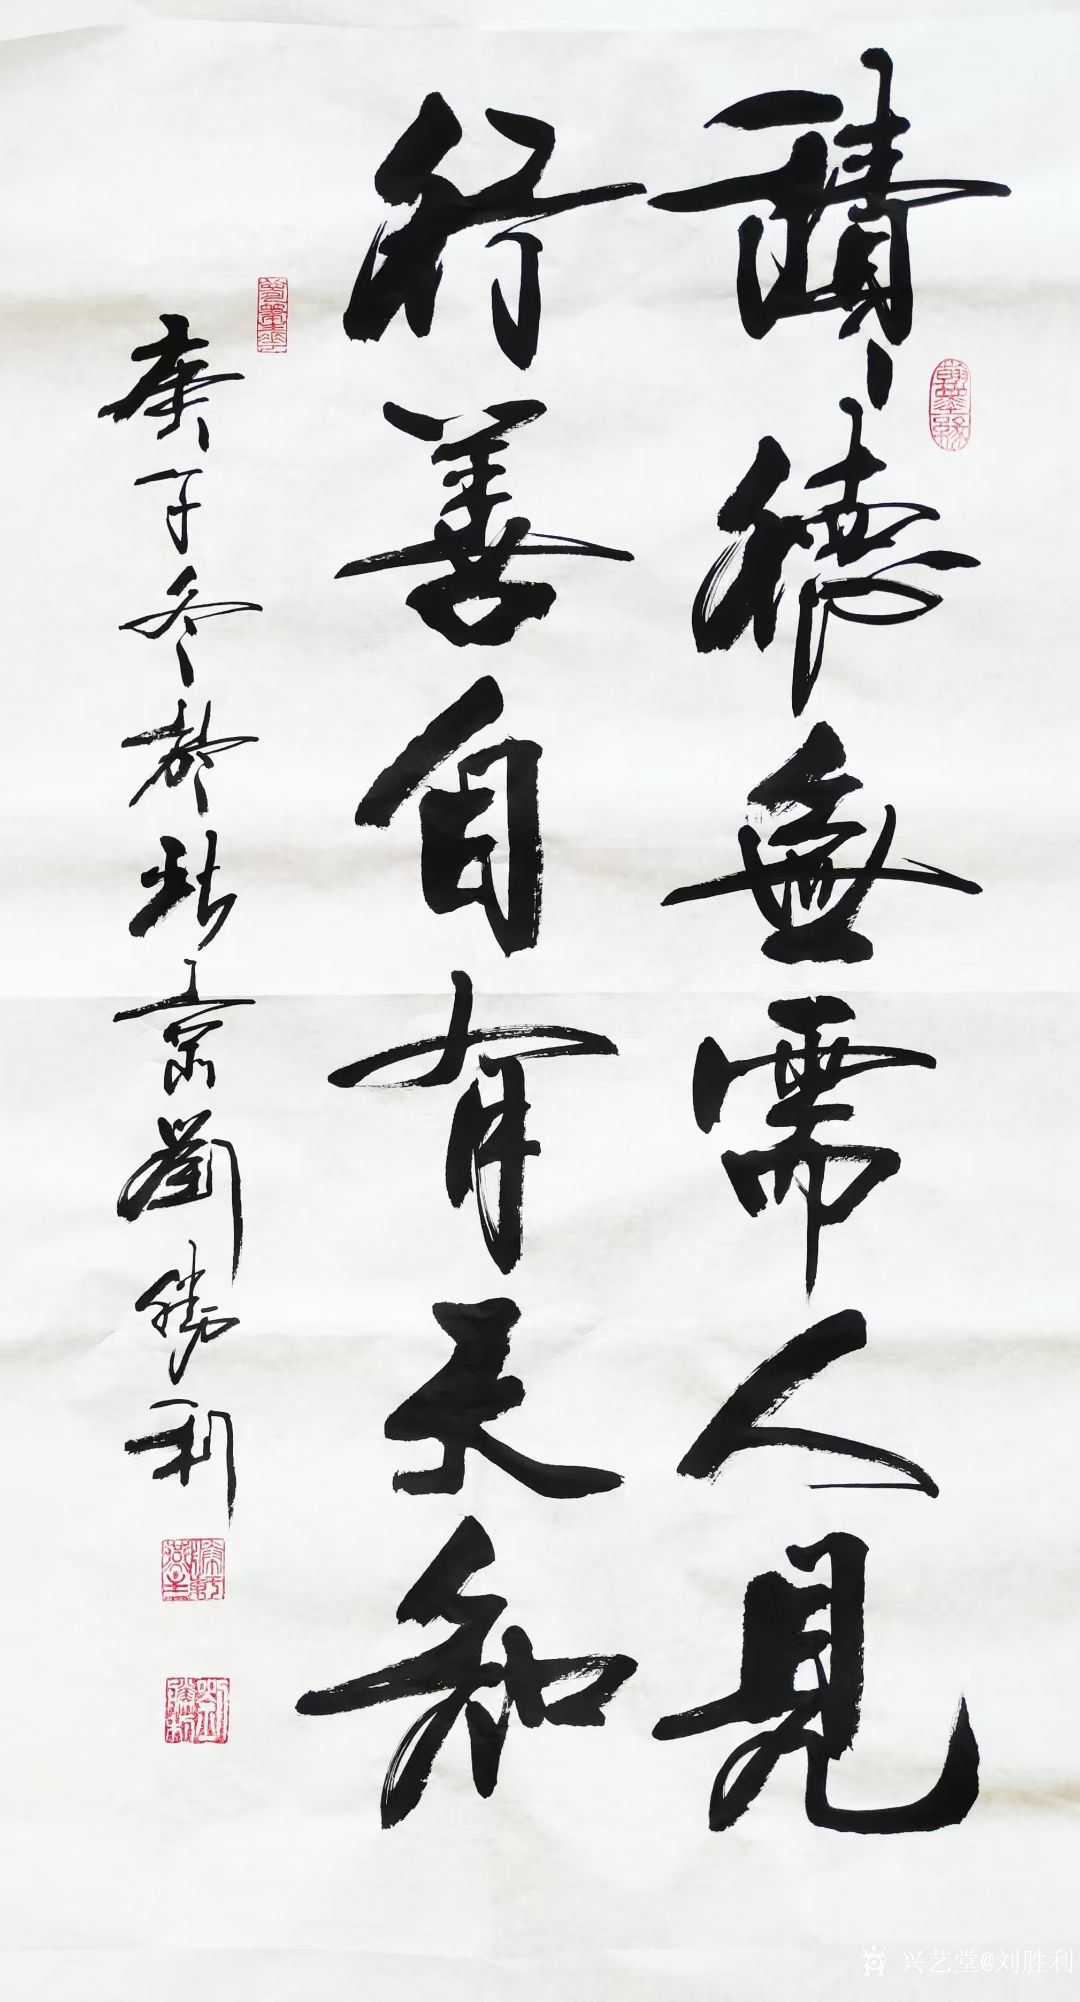 積德無需人見
行善自有天知
庚子冬敬於北京劉勝利
兴艺堂@刘胜利